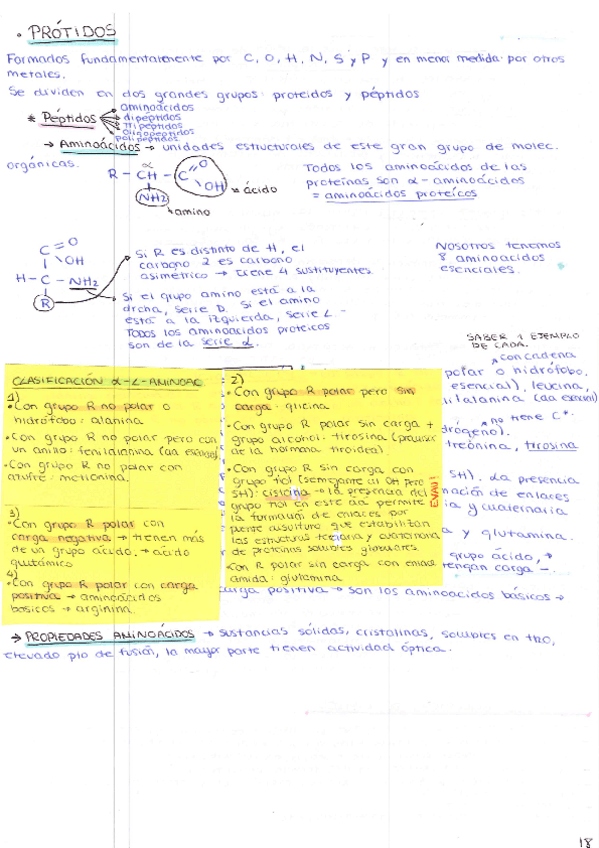 • PRÓTIDOS
Formados fundamentalmente por C, O, H, N, S y P y en menor medida por otros
metales.
Se dividen en dos grandes grupos: proteidos y péptidos
* Péptidos
aminoácidos
dipéptidos
tripéptidos
oligopéptidos
polipéptidos
→ Aminoácidos → unidades estructurales de este gran grupo de molec.
orgánicas.
α
R - CH - C
O
OH
→ ácido
NH2
→ amino
Todos los aminoácidos de las
proteínas son α-aminoácidos
= aminoácidos proteicos
C = O
OH
H - C - NH2
R
Si R es distinto de H, el
carbono 2 es carbono
asimétrico → tiene 4 sustituyentes.
Si el grupo amino está a la
drcha, serie D. Si el amino
está a la izquierda, serie L -
TODOS los aminoácidos proteicos
son de la serie L.
Nosotros tenemos
8 aminoácidos
esenciales.
SABER 1 EJEMPLO
DE CADA.
con cadena
polar o hidrófobo,
esencial), leucina,
(aa esencial)
no tiene C*
drógeno).
treonina, tirosina
SH). La presencia
mación de enlaces
ia y cuaternaria
a y glutamina.
grupo ácido, →
tengan carga -.
CLASIFICACIÓN α-L-AMINOAC
1)
• Con grupo R no polar o
hidrófobo: alanina
• Con grupo R no polar pero con
un anillo: fenilalanina (aa esencial)
• Con grupo R no polar con
azufre: metionina.
3)
• Con grupo R polar con
carga negativa → tienen más
de un grupo ácido. → ácido
glutámico
4)
• Con grupo R polar con carga
positiva → aminoácidos
básicos → arginina.
2)
• Con grupo R polar pero sin
carga: glicina
• Con grupo R polar sin carga +
grupo alcohol: tirosina (precursor
de la hormona tiroidea).
• Con grupo R sin carga con
grupo tiol (semejante al OH pero
SH): cisteína → la presencia del
grupo tiol en este aa permite
la formación de enlaces por
puente disulfuro que estabilizan
las estructuras terciaria y cuaternaria
de proteínas solubles globulares.
• Con R polar sin carga con enlace
amida: glutamina
EVAU!
carga positiva → son los aminoácidos básicos →
→ PROPIEDADES AMINOÁCIDOS → sustancias sólidas, cristalinas, solubles en H2O,
elevado pto de fusión, la mayor parte tienen actividad óptica.
18